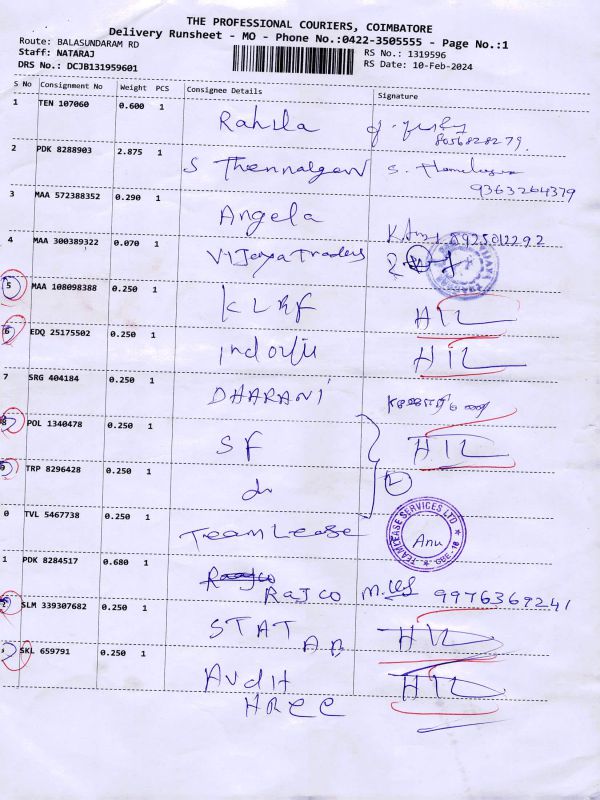 THE PROFESSIONAL COURIERS, COIMBATORE
Delivery Runsheet - MO - Phone No.:0422-3505555 - Page No.:1
Route: BALASUNDARAM RD
RS No.: 1319596
Staff: NATARAJ
RS Date: 10-Feb-2024
DRS No.: DCJB131959601
S No Consignment No Weight PCS Consignee Details Signature
1 TEN 107060 0.600 1 Rahila 8056828279.
2 PDK 8288903 2.875 1 S 9363264379
3 MAA 572388352 0.290 1 Angela
4 MAA 300389322 0.070 1 Vijaya Traders
5 MAA 108098388 0.250 1 KLRF HIL
6 EDQ 25175502 0.250 1 HIL
7 SRG 404184 0.250 1 DHARANI
8 POL 1340478 0.250 1 SF HIL
9 TRP 8296428 0.250 1 do 2
0 TVL 5467738 0.250 1 Team Lease TEAMLEASE SERVICES LTD Anu
1 PDK 8284517 0.680 1 RAJCO 9976369241
2 SLM 339307682 0.250 1 STAT AB HIL
SKL 659791 0.250 1 Audit HIL
HREE